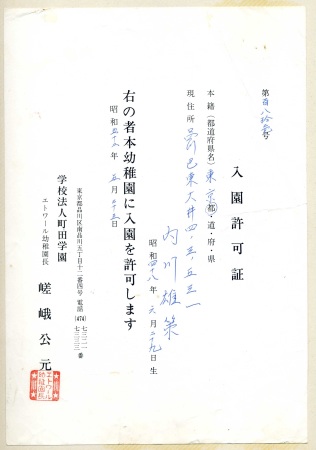 第百八拾壱号
入園許可証
本籍(都道府県名)東京都・道・府・県
現住所 品川区東大井四ノ五ノ五三一
内川雄策
昭和四十八年六月二十九日生
右の者本幼稚園に入園を許可します
昭和五十三年五月二十五日
東京都品川区南品川五丁目十二番四号 電話(474)七三二一 七三三三番
学校法人町田学園
エトワール幼稚園長 嵯峨公元